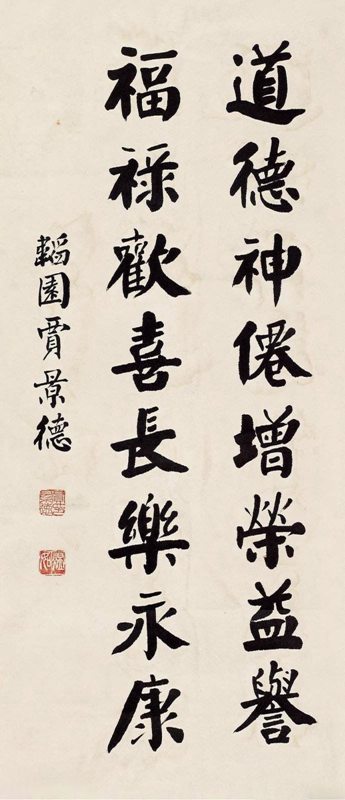 道德神僊增榮益譽
福祿歡喜長樂永康
韜園賈景德